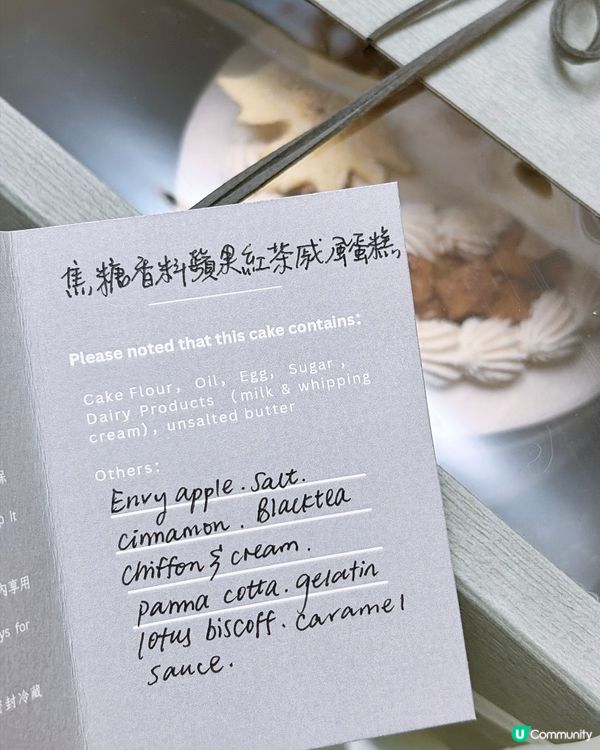 焦糖香料蘋果紅茶戚風蛋糕
Please noted that this cake contains:
Cake Flour, Oil, Egg, Sugar,
Dairy Products (milk & whipping
cream), unsalted butter
Others:
Envy apple. Salt.
cinnamon. Blacktea
chiffon & cream.
panna cotta. gelatin
lotus biscoff. caramel
sauce.
內享用
ys for
封冷藏
U Community